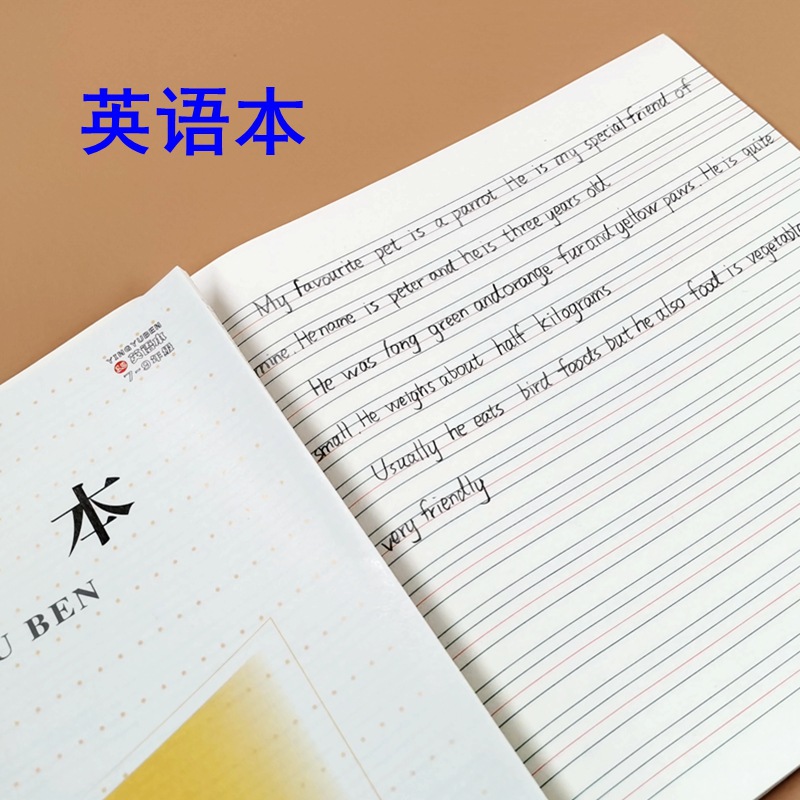 英语本
My favourite pet is a parrot He is my special friend of
mine. He name is peter and he is three years old
He was long green and orange fur and yellow paws. He is quite
small. He weighs about half kilograms
Usually he eats bird foods but he also food is vegetable
very friendly
YINGYUBEN
英语本
7-9年级
本
U BEN